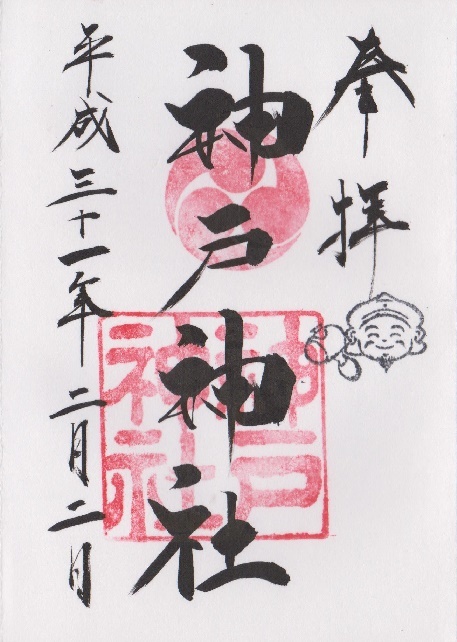 奉拝
神戸神社
神戸神社
平成三十一年二月二日